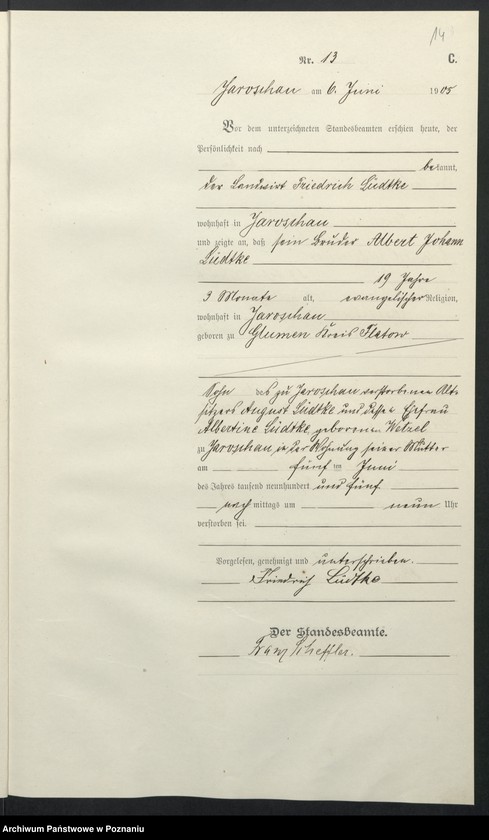 14
Nr. 13 C.
Jaroschau am 6. Juni 1905
Vor dem unterzeichneten Standesbeamten erschien heute, der
Persönlichkeit nach
bekannt,
der Landwirt Friedrich Lüdtke
wohnhaft in Jaroschau
und zeigte an, daß sein Bruder Albert Johann
Lüdtke
19 Jahre
3 Monate alt, evangelischer Religion,
wohnhaft in Jaroschau
geboren zu Glumen Kreis Flatow
Sohn des zu Jaroschau verstorbenen Alt-
sitzers August Lüdtke und dessen Ehefrau
Albertine Lüdtke geborenen Wetzel
zu Jaroschau in der Wohnung seiner Mutter
am fünf ten Juni
des Jahres tausend neunhundert und fünf
nach mittags um neun Uhr
verstorben sei.
Vorgelesen, genehmigt und unterschrieben.
Friedrich Lüdtke
Der Standesbeamte.
Franz Scheffler.
Archiwum Państwowe w Poznaniu